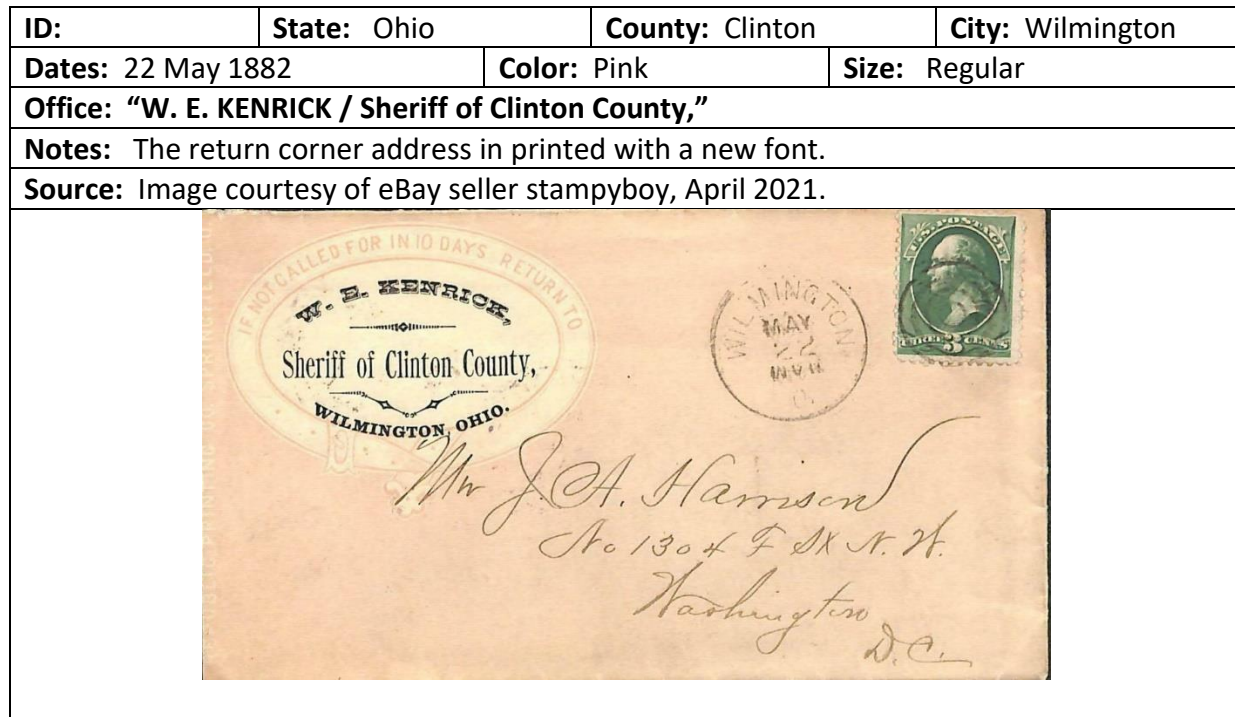 ID:
State: Ohio
County: Clinton
City: Wilmington
Dates: 22 May 1882
Color: Pink
Size: Regular
Office: “W. E. KENRICK / Sheriff of Clinton County,”
Notes: The return corner address in printed with a new font.
Source: Image courtesy of eBay seller stampyboy, April 2021.
IF NOT CALLED FOR IN 10 DAYS RETURN TO
W. E. KENRICK,
Sheriff of Clinton County,
WILMINGTON, OHIO.
WILMINGTON
MAY
22
O.
U.S. POSTAGE
THREE 3 CENTS
Mr J. A. Harrison
No 1304 F St N. W.
Washington
D.C.